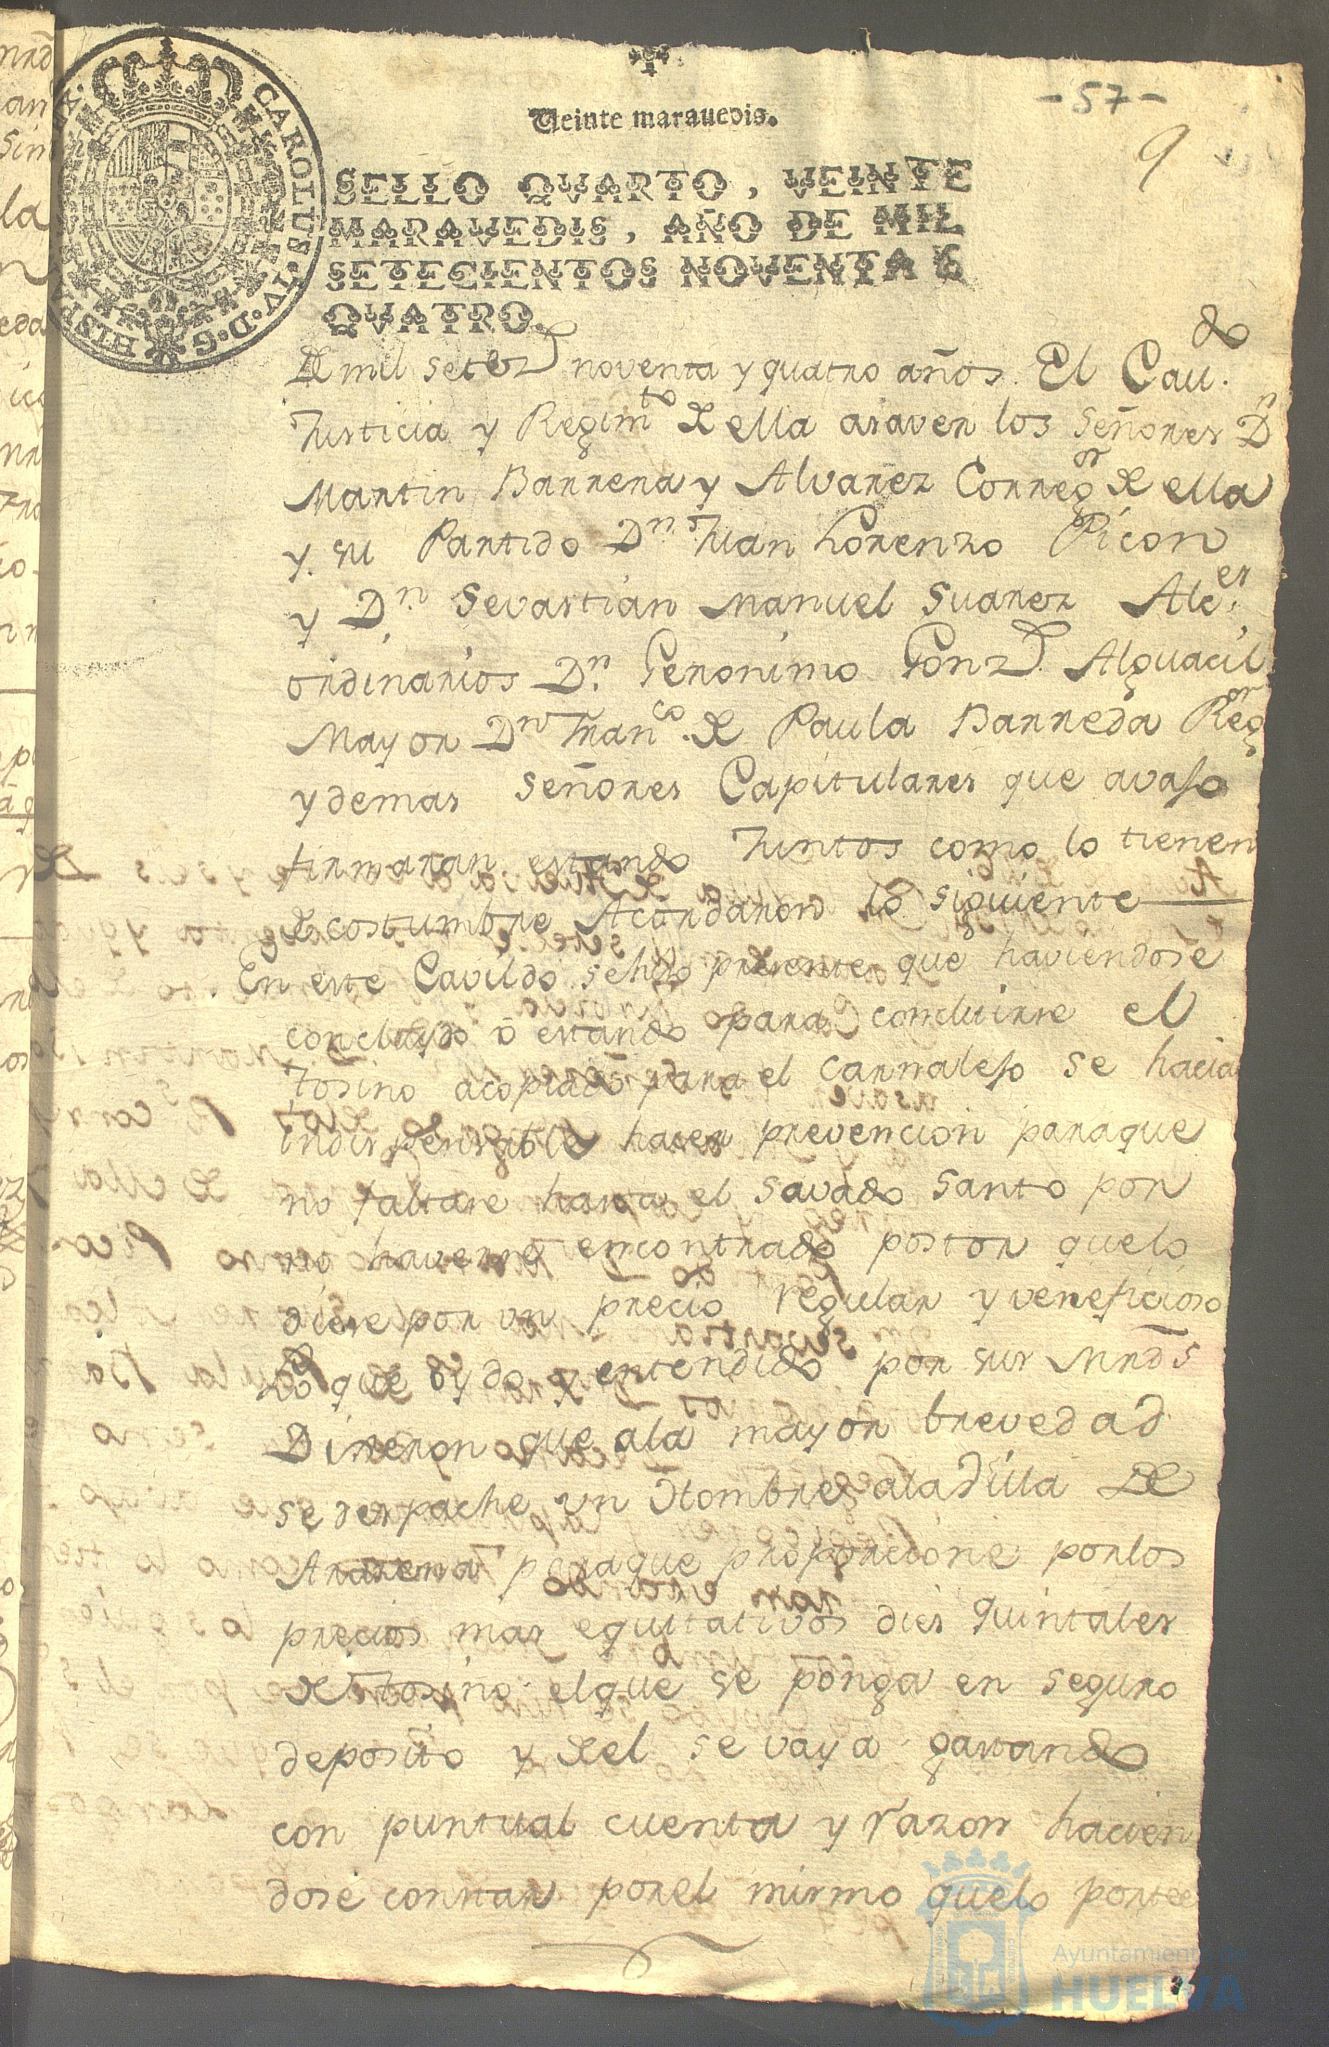 -57-
9
Veinte marauedis.
CAROLUS. IV. D. G. HISP
SELLO QVARTO, VEINTE
MARAVEDIS, AÑO DE MIL
SETECIENTOS NOVENTA Y
QVATRO.
De mil setez.s noventa y quatro años. El Cau.do
Justicia y Regim.to de ella asaver los Señores D.n
Martin Barrera y Alvarez Correg.or de ella
y su Partido D.n Juan Lorenzo Picon
y D.n Sevastian Manuel Suarez Alc.es
ordinarios D.n Geronimo Gonz.s Alguacil
Mayor D.n Fran.co de Paula Barreda Reg.or
y demas Señores Capitulares que avaso
firmaran estando Juntos como lo tienen
de costumbre Acordaron lo siguiente
En este Cavildo se hizo presente que haviendose
concluydo ó estando para concluirse el
tosino acopiado para el carnaleso se hacia
indispensable hacer prevencion paraque
no faltase hasta el savado santo por
no haverse encontrado postor quelo
diese por un precio regular y veneficioso
Lo que oydo y entendido por sus mrds
Dixeron que ala mayor brevedad
se despache un Hombre ala Villa de
Aracena paraque proporcione porlos
precios mas equitativos dies quintales
de tosino elque se ponga en seguro
deposito y del se vaya gastando
con puntual cuenta y razon hacien
dose constar porel mismo quelo
Ayuntamiento de
HUELVA